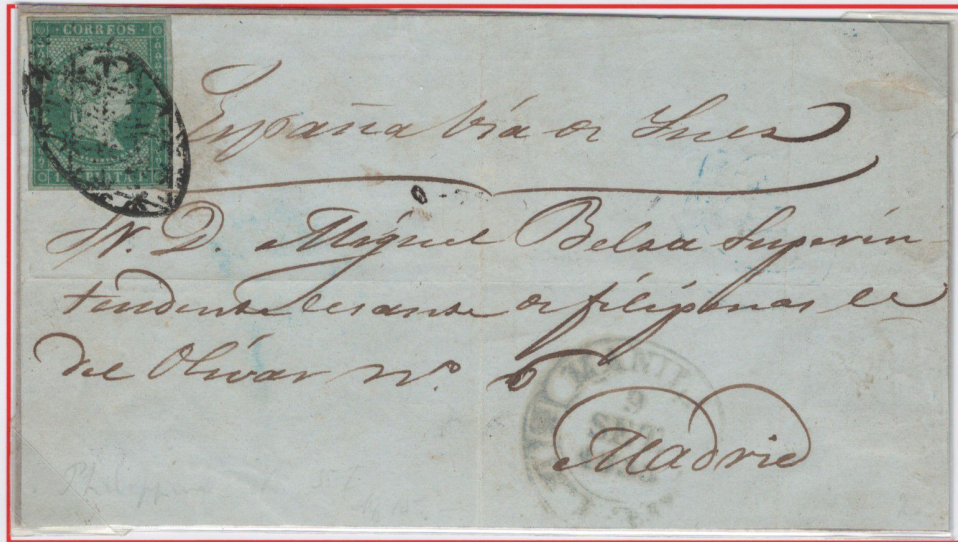 CORREOS
España via de Suez
S.r D. Miguel Belza Superin-
tendente cesante de filipinas ce
del Olivar nº 6
MANILA
9
Madrid